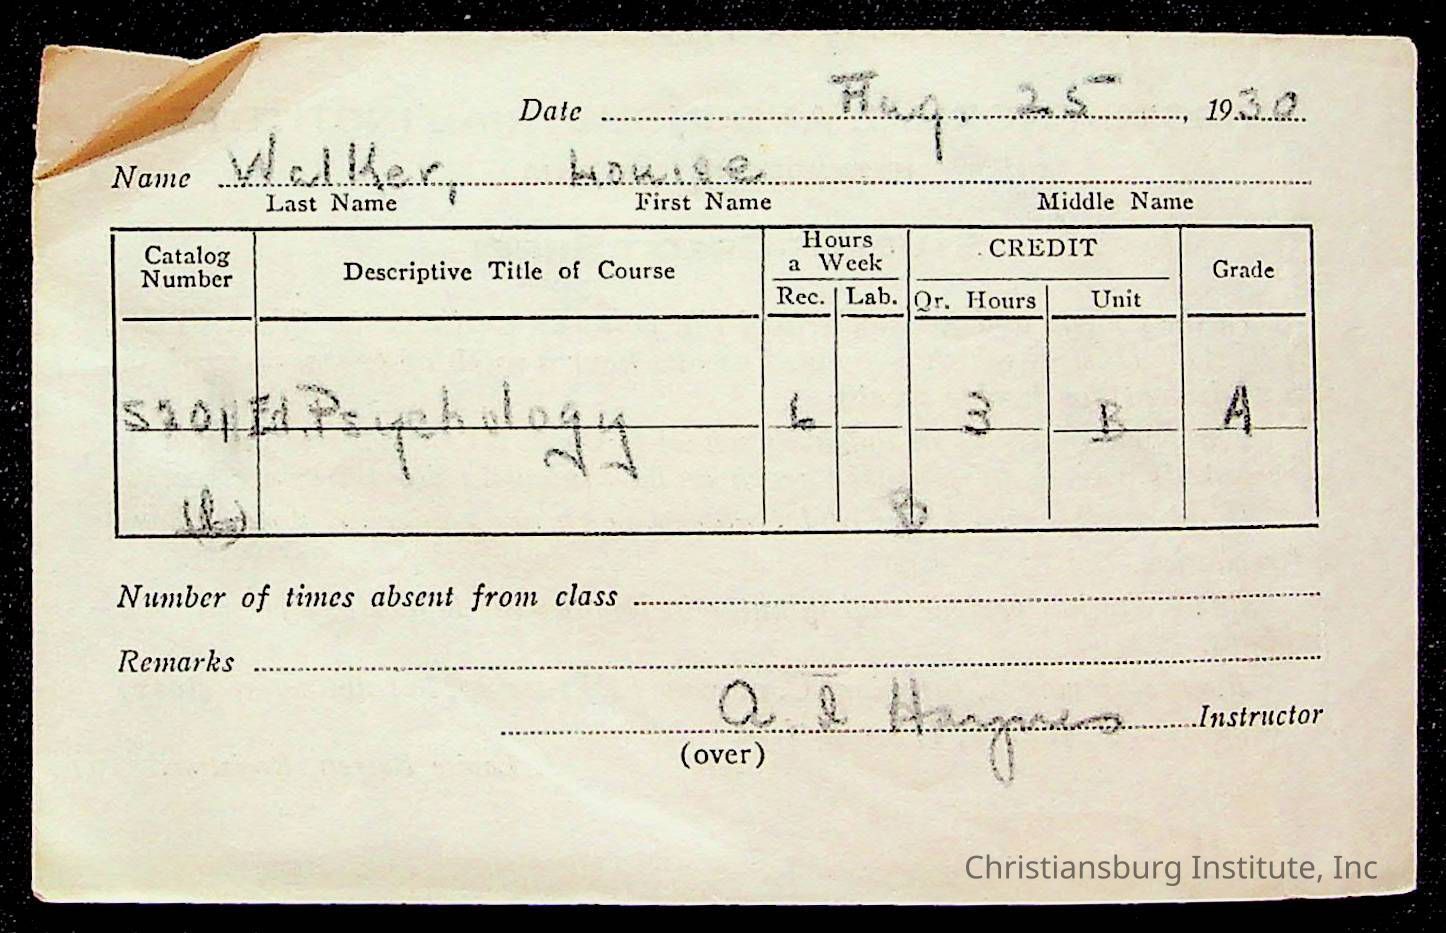 Date Aug. 25, 1930
Name Walker, Louise
Last Name First Name Middle Name
Catalog Number Descriptive Title of Course Hours a Week Rec. Lab. CREDIT Qr. Hours Unit Grade
S201 Ed. Psychology 6 3 B A
B
Number of times absent from class
Remarks
Haynes Instructor
(over)
Christiansburg Institute, Inc